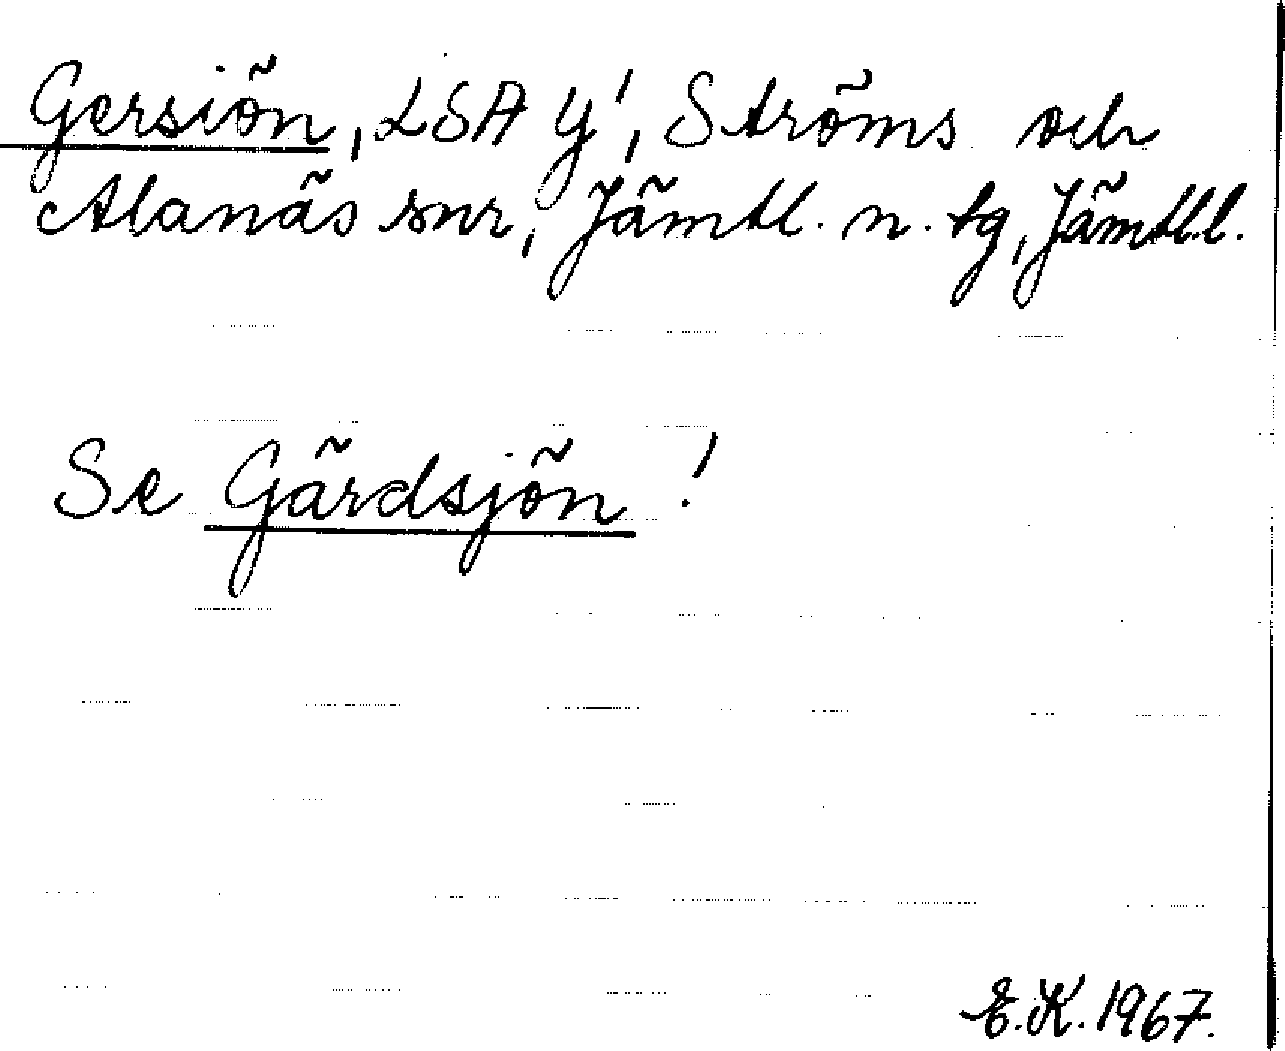 Gersiön, LSA Y', Ströms och
Alanäs snr, Jämtl. n. tg, Jämtl.l.
Se Gärdsjön!
E.K. 1967.